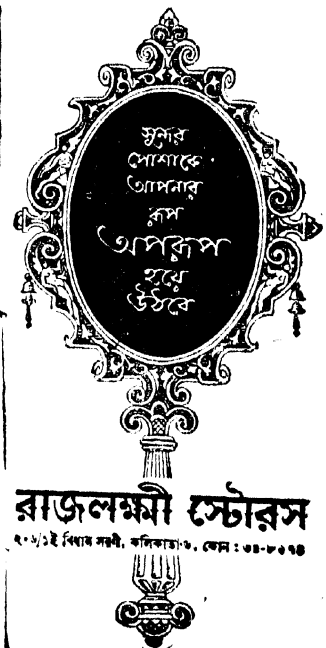 সুন্দর
পোশাকে
আপনার
রূপ
অপরূপ
হয়ে
উঠবে
রাজলক্ষ্মী স্টোরস
২০৬/১ই বিধান সরণী, কলিকাতা-৬, ফোন : ৩৪-৮৬৭৪